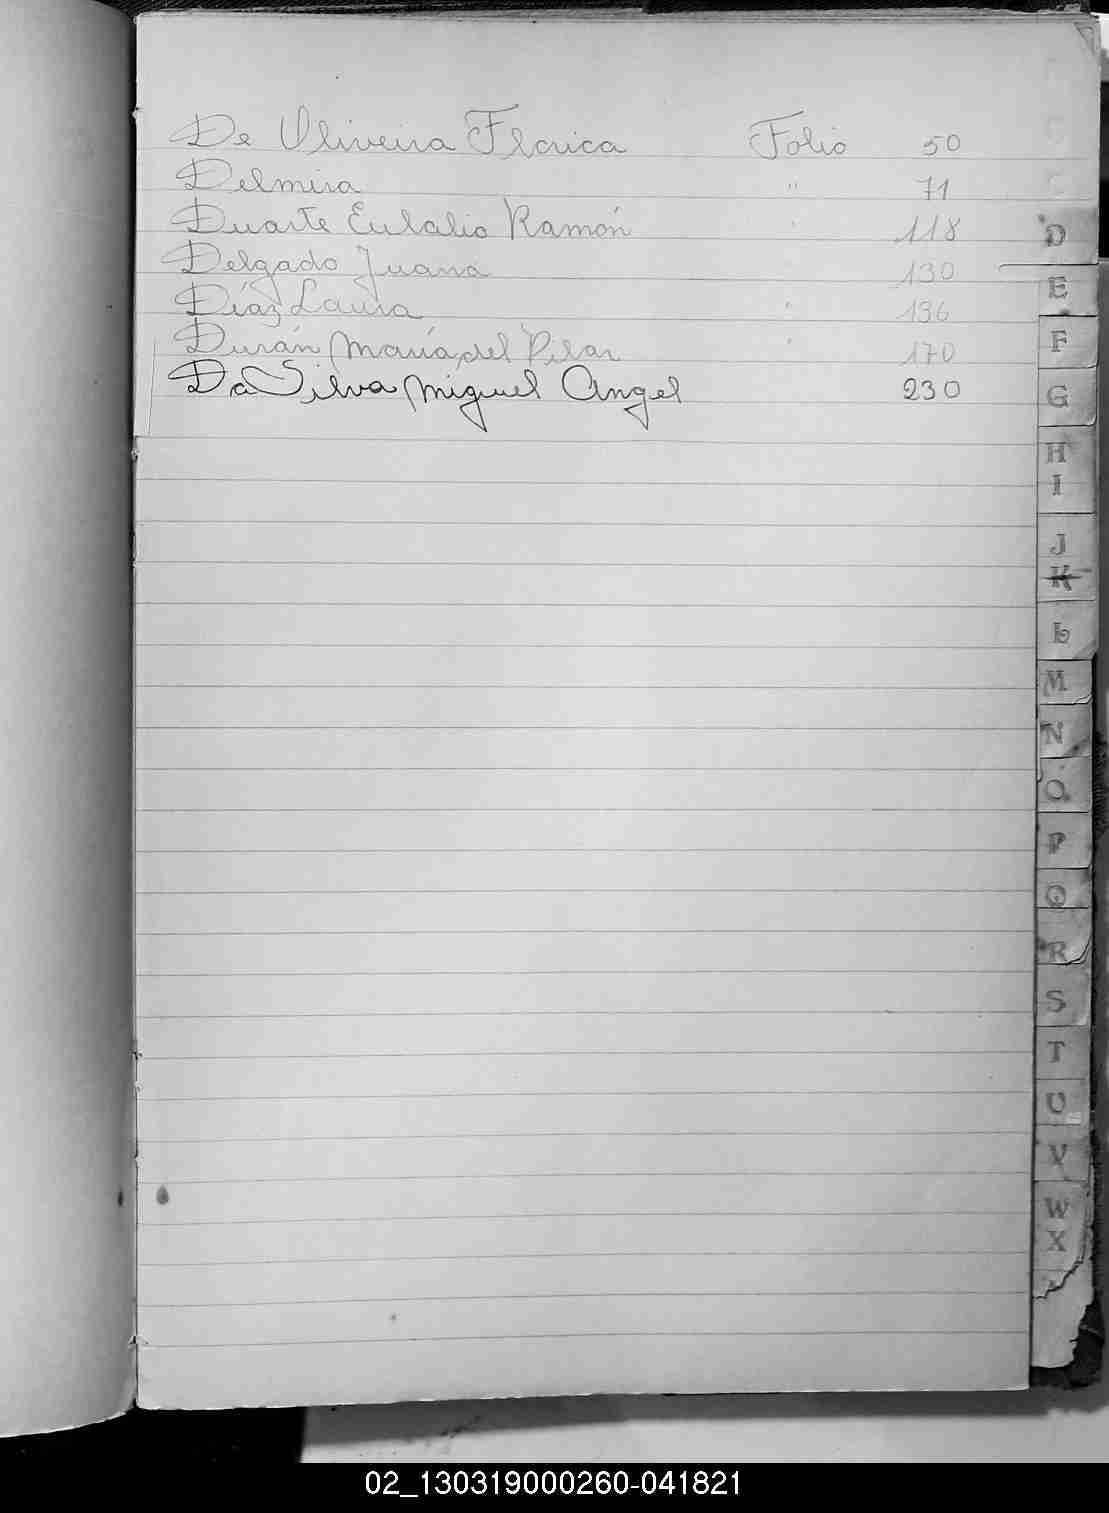 De Oliveira Florica Folio 50
Delmira " 71
Duarte Eulalio Ramón " 118
Delgado Juana 130
Díaz Laura " 136
Durán María del Pilar " 170
Da Silva Miguel Angel 230
D
E
F
G
H
I
J
K
L
M
N
O
P
Q
R
S
T
U
V
W
X
02_130319000260-041821